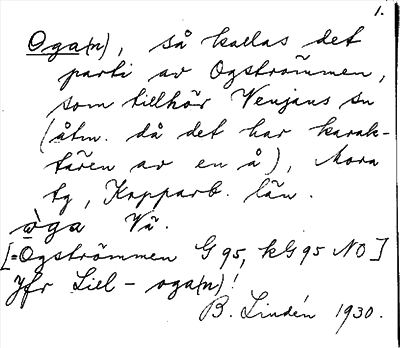 1.
Oga(n), så kallas det
parti av Ogströmmen,
som tillhör Venjans sn
(åtm. då det har karak-
tären av en å), Mora
tg, Kopparb. län.
òga Vä.
[=Ogströmmen G 95, kG 95 NO]
Jfr Lill-oga(n)!
B. Lindén 1930.